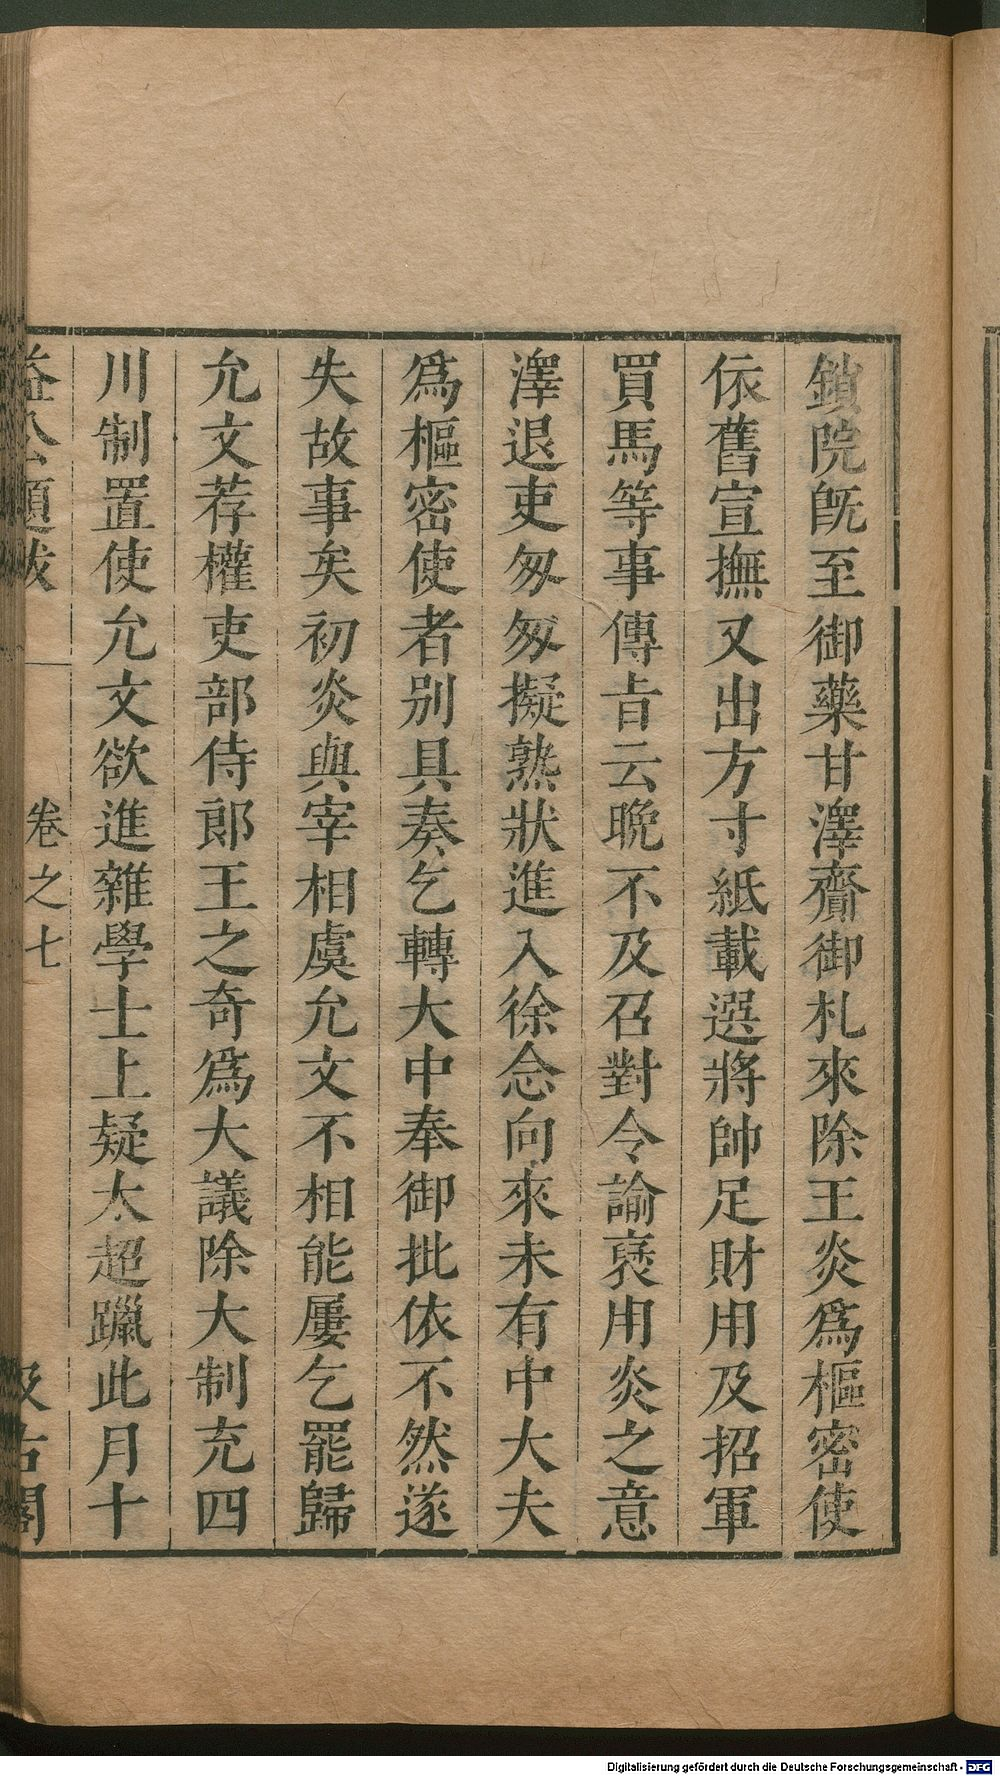 鎖院旣至御藥甘澤齎御札來除王炎爲樞密使
依舊宣撫又出方寸紙載選將帥足財用及招軍
買馬等事傳旨云晩不及召對令諭褒用炎之意
澤退吏匆匆擬熟狀進入徐念向來未有中大夫
爲樞密使者別具奏乞轉大中奉御批依不然遂
失故事矣初炎與宰相虞允文不相能屢乞罷歸
允文荐權吏部侍郎王之奇爲大議除大制充四
川制置使允文欲進雜學士上疑太超躐此月十
益公題跋 卷之七 汲古閣
Digitalisierung gefördert durch die Deutsche Forschungsgemeinschaft - DFG